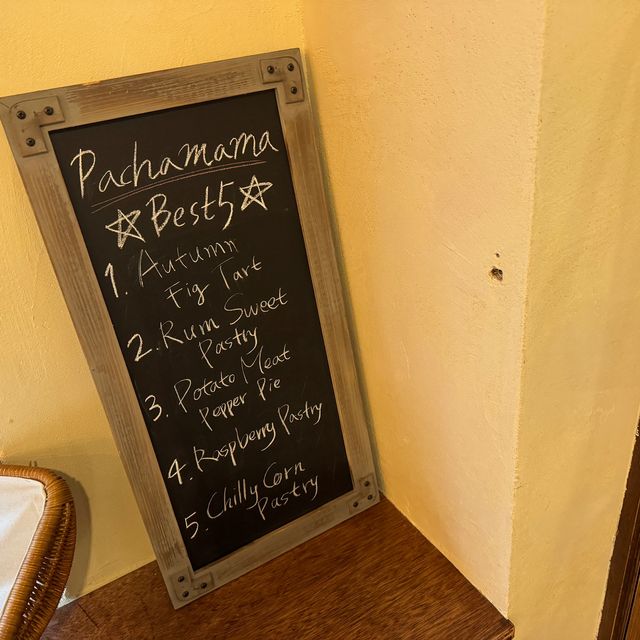 Pachamama
☆Best5☆
1. Autumn
Fig Tart
2. Rum Sweet
Pastry
3. Potato Meat
Pepper Pie
4. Raspberry Pastry
5. Chilly Corn
Pastry